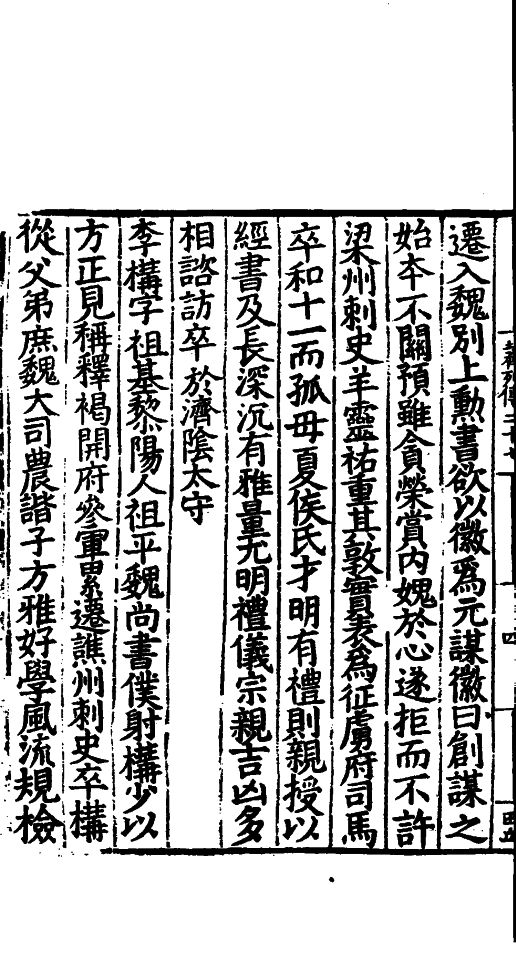 遷入魏別上勳書欲以徽爲元謀徽曰創謀之
始夲不關預雖貪榮賞内媿於心遂拒而不許
梁州刺史羊靈祐重其敦實表為征虜府司馬
卒和十一而孤母夏侯氏才明有禮則親授以
經書及長深沉有雅量尤明禮儀宗親吉凶多
相諮訪卒於濟隂太守
李構字祖基黎陽人祖平魏尚書僕射構少以
方正見稱釋褐開府參軍累遷譙州刺史卒構
從父弟庶魏大司農諧子方雅好學風流規檢